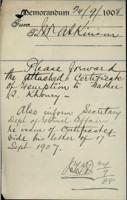 Memorandum 24/9/1908
From
J. W. Atkinson
Please forward
the attached Certificate
of Exemption to
Also inform Secretary
Dept of External Affairs
he value of Certificates
Vide his letter of 17
Sept 1907.